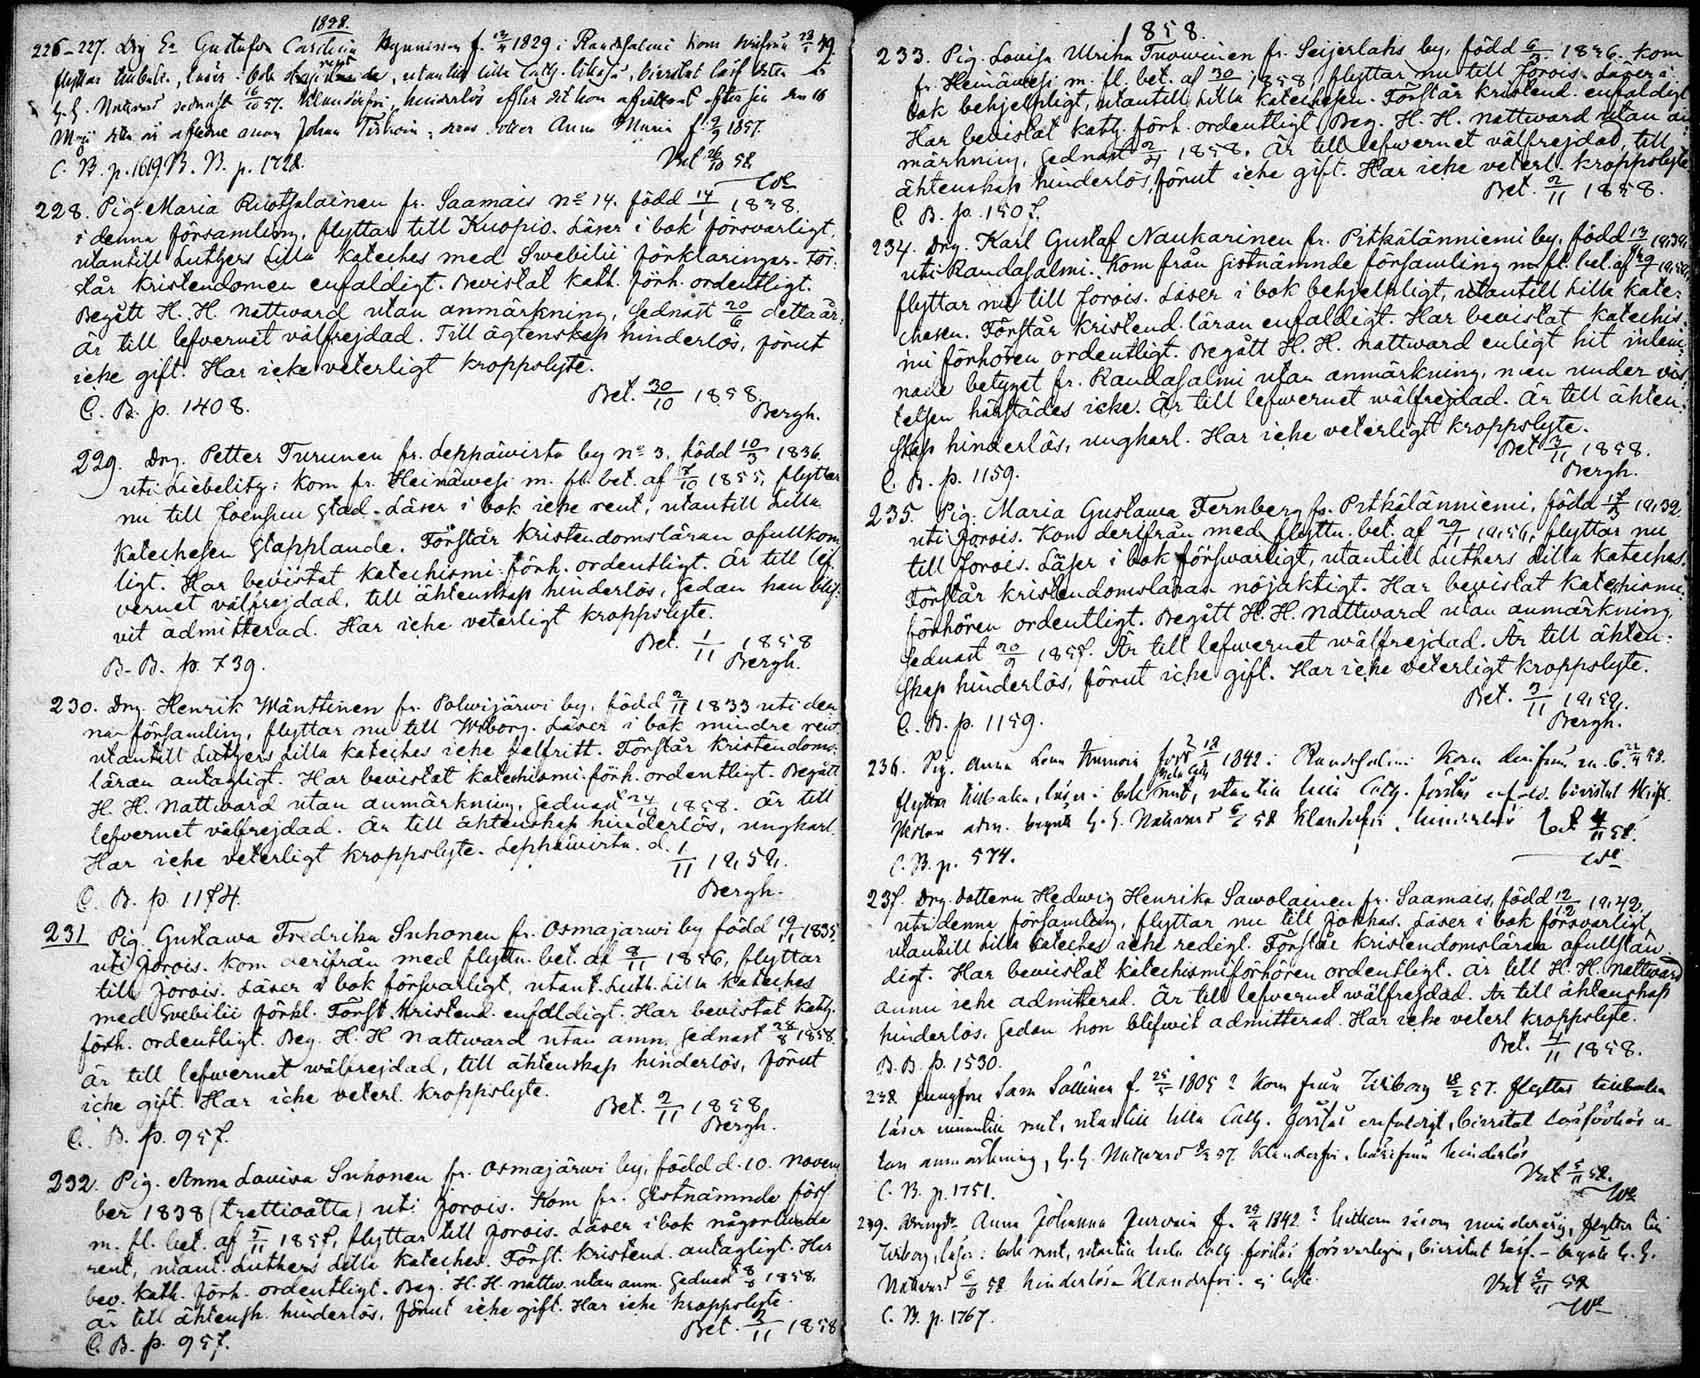 1858.
226-227. Drg Ea Gustafva Carolina f. 12/4 1829 i Randasalmi kom 49
flyttar tillbaka, läser i bok utantill lilla Cath.
H. H. Nattvard sednast 16/10 57. hinderlös efter det hon
Johan Anna Maria f. 2/9 1857.
C. B. p. 1619 B. B. p. 1728. Bet 26/10 58
228. Pig. Maria Ruotsalainen fr. Saamais No 14. född 14/1 1838.
i denna församling, flyttar till Kuopio. Läser i bok försvarligt,
utantill Luthers Lilla kateches med Swebilii förklaringar. För-
står kristendomen enfaldigt. Bevistat kath. förh. ordentligt.
Begått H. H. nattward utan anmärkning, sednast 20/6 detta år.
Är till lefvernet välfrejdad. Till ägtenskap hinderlös, förut
icke gift. Har icke veterligt kroppslyte.
Bet. 30/10 1858
C. B. p. 1408. Bergh.
229. Drg. Petter Turunen fr. Leppäwirta by No 3, född 10/3 1836.
uti Libelitz; kom fr. Heinäwesi m. fl. bet. af 7/10 1855, flyttar
nu till Joensuu Stad. Läser i bok icke rent, utantill Lilla
Katechesen stapplande. Förstår kristendomsläran ofullkom-
ligt. Har bevistat katechismi förh. ordentligt. Är till lef-
vernet välfrejdad, till ähtenskap hinderlös, sedan han blif-
vit admitterad. Har icke veterligt kroppslyte.
Bet. 1/11 1858
B. B. p. 739. Bergh.
230. Drg. Henrik Mänttinen fr. Polwijärwi by, född 2/11 1833 uti den-
na församling, flyttar nu till Wiborg. Läser i bok mindre rent
utantill Luthers Lilla kateches icke felfritt. Förstår kristendoms-
läran antagligt. Har bevistat katechismi förh. ordentligt. Begått
H. H. nattward utan anmärkning, sednast 1858. Är till
lefvernet välfrejdad. Är till ähtenskap hinderlös, ungkarl.
Har icke veterligt kroppslyte. Lephäwirta. d. 1/11 1858.
C. B. p. 1174. Bergh.
231 Pig. Gustawa Fredrika Suhonen fr. Osmajärwi by född 19/11 1835
uti Jorois. Kom derifrån med flyttn. bet. af 8/11 1856, flyttar
till Jorois. Läser i bok försvarligt, utant. Luth. Lilla kateches
med Swebilii förkl. Först. kristend. enfaldigt. Har bevistat kath.
förh. ordentligt. Beg. H. H. nattward utan anm. sednast 28/8 1858.
Är till lefwernet wälfrejdad, till ähtenskap hinderlös, förut
icke gift. Har icke veterl. kroppslyte.
Bet. 2/11 1858
C. B. p. 957. Bergh.
232. Pig. Anna Lovisa Suhonen fr. Osmajärwi by, född d. 10. novem-
ber 1838 (trettioåtta) uti Jorois. Kom fr. sistnämnde förs.
m. fl. bet. af 5/11 1857, flyttar till Jorois. Läser i bok någorlunda
rent, utant. Luthers Lilla kateches. Först. kristend. antagligt. Har
bev. kath. förh. ordentligt. Beg. H. H. nattw. utan anm. sednast 8/8 1858.
Är till ähtensk. hinderlös, förut icke gift. Har icke kroppslyte.
Bet. 2/11 1858
C. B. p. 957.
1858.
233. Pig. Lovisa Ulrika Tuowinen fr. Seijerlaks by, född 6/3 1836. kom
fr. Heinäwesi m. fl. bet. af 30/ 1858, flyttar nu till Jorois. Läser i
bok behjelpligt, utantill Lilla katechesen. Förstår kristend. enfaldigt
Har bevistat kath. förh. ordentligt. Beg. H. H. nattward utan an-
märkning, sednast 1858. Är till lefwernet välfrejdad, till
ähtenskap hinderlös, förut icke gift. Har icke veterl. kroppslyte
Bet. 2/11 1858.
C. B. p. 1507.
234. Drg. Karl Gustaf Naukarinen fr. Pitkälänniemi by, född 13/
uti Randasalmi. Kom från sistnämnde församling m. fl. bet. af
flyttar nu till Jorois. Läser i bok behjelpligt, utantill Lilla kate-
chesen. Förstår kristend. läran enfaldigt. Har bevistat katechis-
mi förhören ordentligt. Begått H. H. nattward enligt hit inlem-
nade betyget fr. Randasalmi utan anmärkning, men under vis-
telsen härstädes icke. Är till lefwernet wälfrejdad. Är till ähten-
skap hinderlös, ungkarl. Har icke veterligt kroppslyte.
Bet. 2/11 1858.
C. B. p. 1159. Bergh.
235. Pig. Maria Gustawa Fernberg fr. Pitkälänniemi, född 1832
uti Jorois. Kom derifrån med flyttn. bet. af 1856, flyttar nu
till Jorois. Läser i bok försvarligt, utantill Luthers Lilla kateches.
Förstår kristendomsläran nöjaktigt. Har bevistat Katechismi
förhören ordentligt. Begått H. H. nattward utan anmärkning,
sednast 20/9 1857. Är till lefwernet wälfrejdad. Är till ähten-
skap hinderlös, förut icke gift. Har icke veterligt kroppslyte.
Bet. 3/11 1858.
C. B. p. 1159. Bergh.
236. Pig. Anna Lena född 1842 i Randasalmi Kom derifrån 58.
flyttar tillbaka, läser i bok rent, utantill lilla Cath. förstår bevistat
adm. begått H. H. Nattvard 58 hinderlös Bet 4/11 58.
C. B. p. 574.
237. Drg. dottern Hedwig Henrika Sawolainen fr. Saamais, född 12/12 1842
uti denna församling, flyttar nu till Jokkas. Läser i bok försvarligt,
utantill Lilla kateches icke redigt. Förstår kristendomsläran ofullstän-
digt. Har bevistat katechismiförhören ordentligt. Är till H. H. nattward
ännu icke admitterad. Är till lefwernet wälfrejdad. Är till ähtenskap
hinderlös, sedan hon blifwit admitterad. Har icke veterl. kroppslyte.
Bet. 4/11 1858.
B. B. p. 1530.
238. Jungfru Sara Sallinen f. 25/5 1805? Kom från Wiborg 18/2 57. flyttar tillbaka
läser innantill rent, utantill lilla Cath. förstår enfaldigt, bevistat läsförhör u-
tan anmärkning, H. H. Nattvard 57. hinderlös
Bet 5/11 58.
C. B. p. 1751.
239. Anna Johanna f. 29/4 1842? flyttar till
Wiborg, läser i bok rent, utantill lilla Cath. förstår försvarligen, bevistat läsf. begått H. H.
Nattvard 58 hinderlös ej lyte. Bet 5/11 58
C. B. p. 1767.